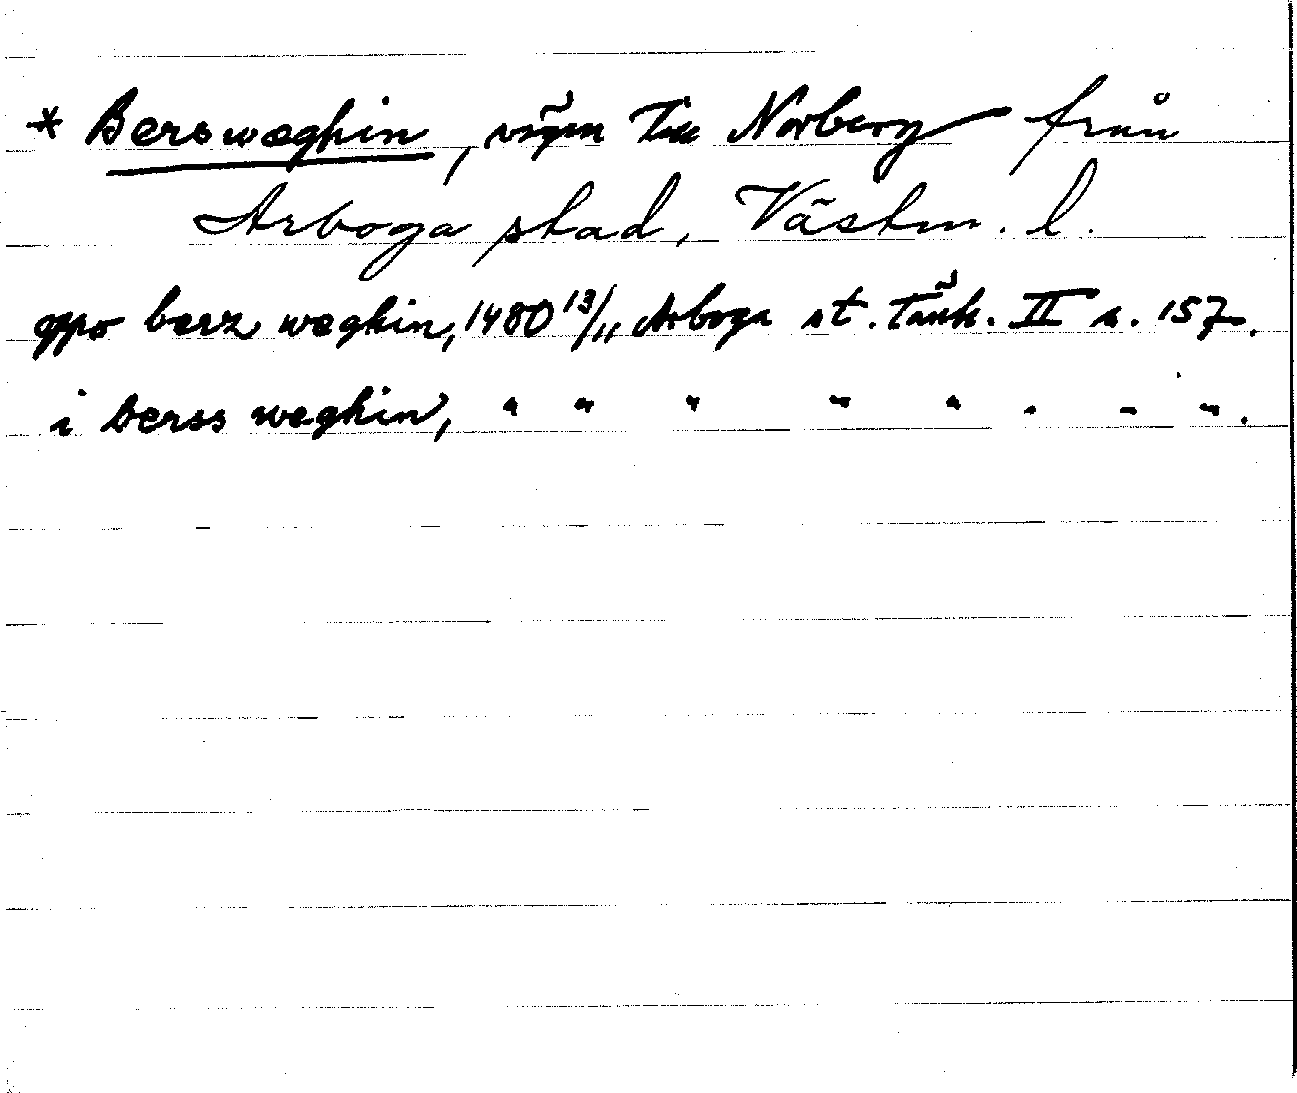 * Berswæghin, vägen till Norberg från
Arboga stad, Västm. l.
oppo berz wæghin, 1480 13/11 Arboga st. Tänk. II s. 157.
i berss weghin, " " " " " " " ".